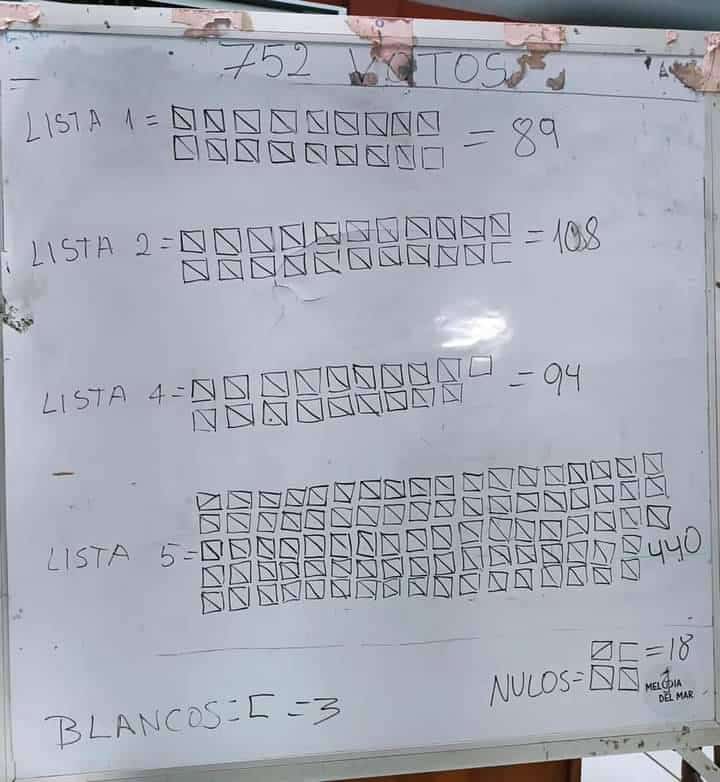 752 VOTOS
LISTA 1 = = 89
LISTA 2 = = 108
LISTA 4 = = 94
LISTA 5 = 440
NULOS = = 18
MELODIA
DEL MAR
BLANCOS = = 3